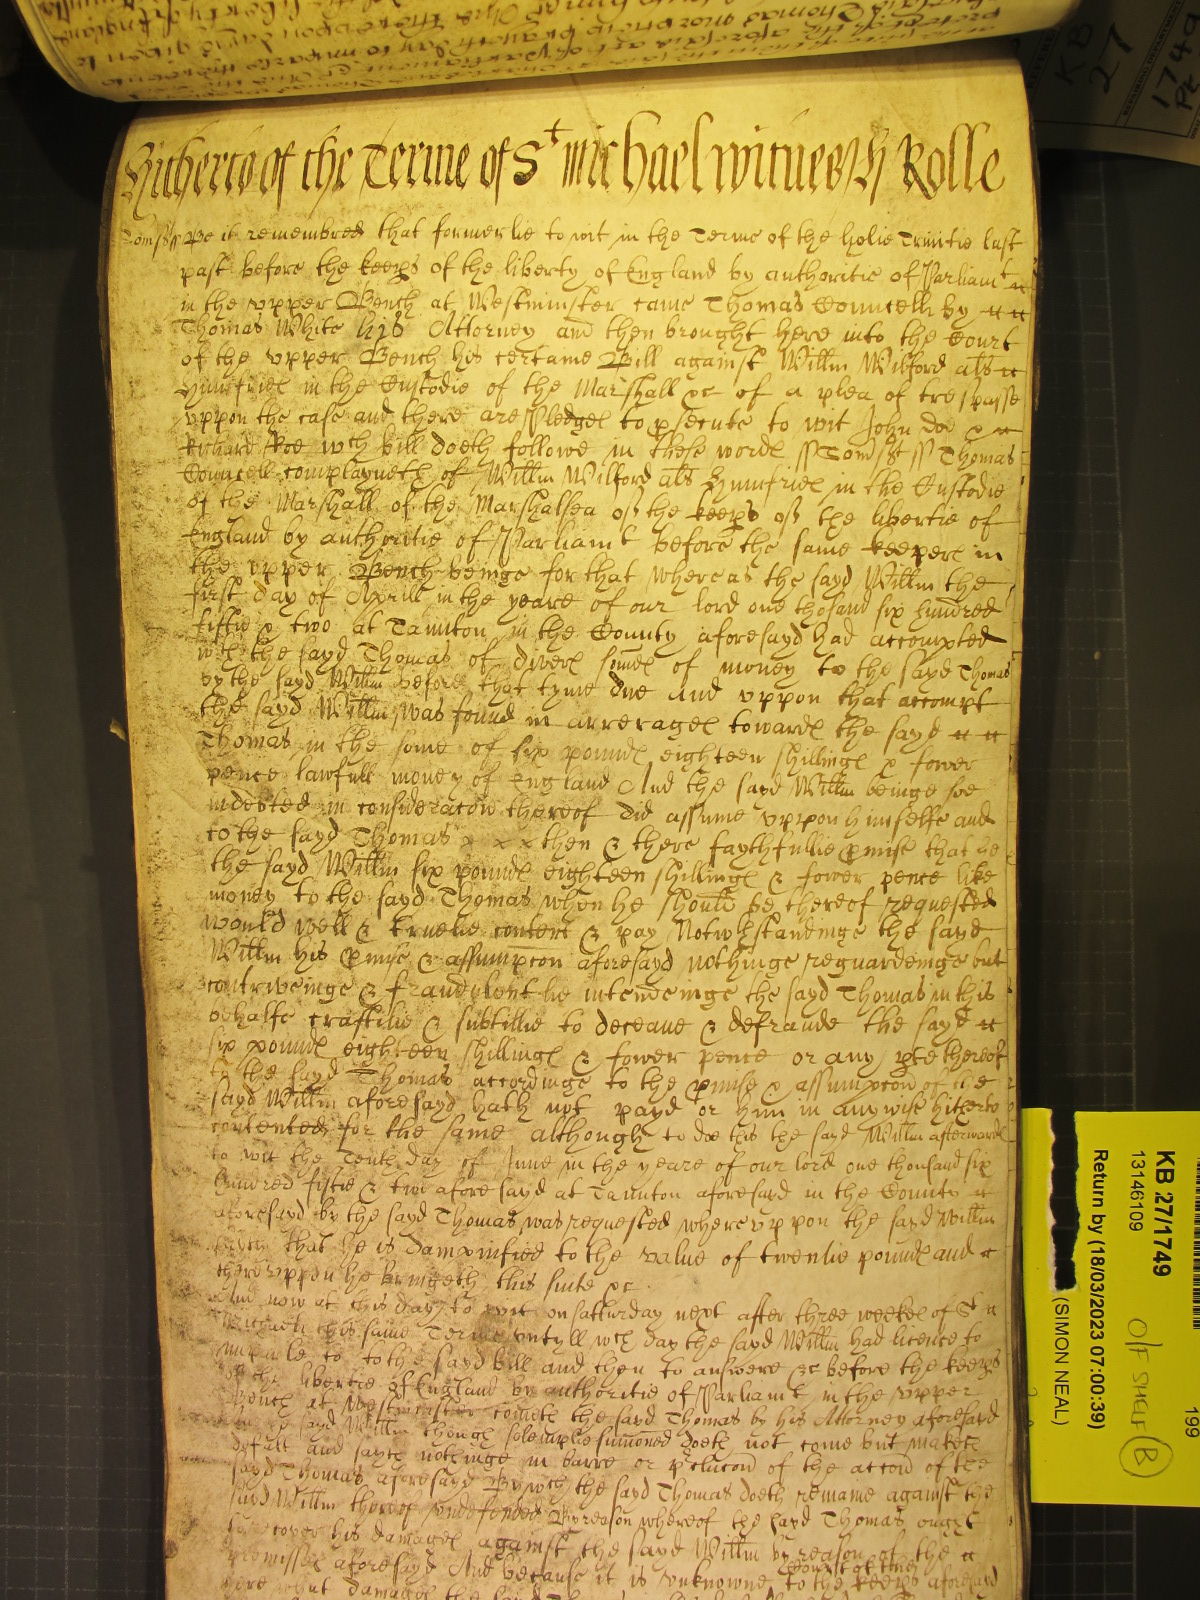 Hitherto of the Terme of St Michael witnesseth Rolle
Somst ss Be it remembred that formerlie to wit in the Terme of the holie Trinitie last
past before the keeps of the liberty of England by authoritie of Parliamt
in the vpper Bench at Westminster came Thomas Councell by
Thomas White his Attorney and then brought here into the Court
of the vpper Bench his certaine Bill against Willm Wilford als
Humfries in the Custodie of the Marshall &c of a plea of trespasse
vppon the case and there are Pledges to psecute to wit John doe &
Richard Roe wch bill doeth followe in these words ss Somst ss Thomas
Councell complayneth of Willm Wilford als Humfries in the Custodie
of the Marshall of the Marshalsea of the keeps of the libertie of
England by authoritie of Parliamt before the same keepers in
the vpper Bench beinge for that whereas the sayd Willm the
first day of Aprill in the yeare of our lord one thosand six hundred
fiftie & two at Taunton in the County aforesayd had accompted
with the sayd Thomas of divers somes of money to the sayd Thomas
by the sayd Willm before that tyme due and vppon that accompt
the sayd Willm was found in arrerages towards the sayd
Thomas in the some of six pounds eighteen shillings & fower
pence lawfull money of England And the sayd Willm beinge soe
indebted in consideracon thereof did assume vppon himselfe and
to the sayd Thomas x x x then & there faythfullie pmise that he
the sayd Willm six pounds eighteen shillings & fower pence like
money to the sayd Thomas when he should be thereof requested
would well & truelie content & pay Notwthstandinge the sayd
Willm his pmise & assumpcon aforesayd nothinge reguardeinge but
contriveinge & fraudulentlie intendeinge the sayd Thomas in this
behalfe craftilie & subtillie to deceave & defraude the sayd
six pounds eighteen shillings & fower pence or any pte thereof
to the sayd Thomas accordinge to the pmise & assumpcon of the
sayd Willm aforesayd hath not payd or him in anywise hitherto
contented for the same although to doe this the sayd Willm afterwards
to wit the Tenth day of June in the yeare of our lord one thousand six
hundred fiftie & two aforesayd at Taunton aforesayd in the County
aforesayd by the sayd Thomas was requested wherevppon the sayd Willm
that he is damnified to the value of twentie pounds and
therevppon he bringeth this suite &c
And now at this day to wit on satturday next after three weekes of St
Michaell this same Terme vntyll wch day the sayd Willm had licence to
imparle to to the sayd bill and then to answere &c before the keeps
of the libertie of England by authoritie of Parliamt in the vpper
Bench at Westminster cometh the sayd Thomas by his Attorney aforesayd
sayd Willm though solemplie sumoned doeth not come but maketh
defalt and sayth nothinge in barre or pclucon of the accon of the
sayd Thomas aforesayd By wch the sayd Thomas doeth remaine against the
sayd Willm thereof vndefended By reason whereof the sayd Thomas ought
to recover his damages against the sayd Willm by reason of the
premisses aforesayd And because it is vnknowne to the keeps aforesayd
what damages the sayd
KB 27/1749
13146109
Return by (18/03/2023 07:00:39)
(SIMON NEAL)
O/F SHELF B
199
KB
27